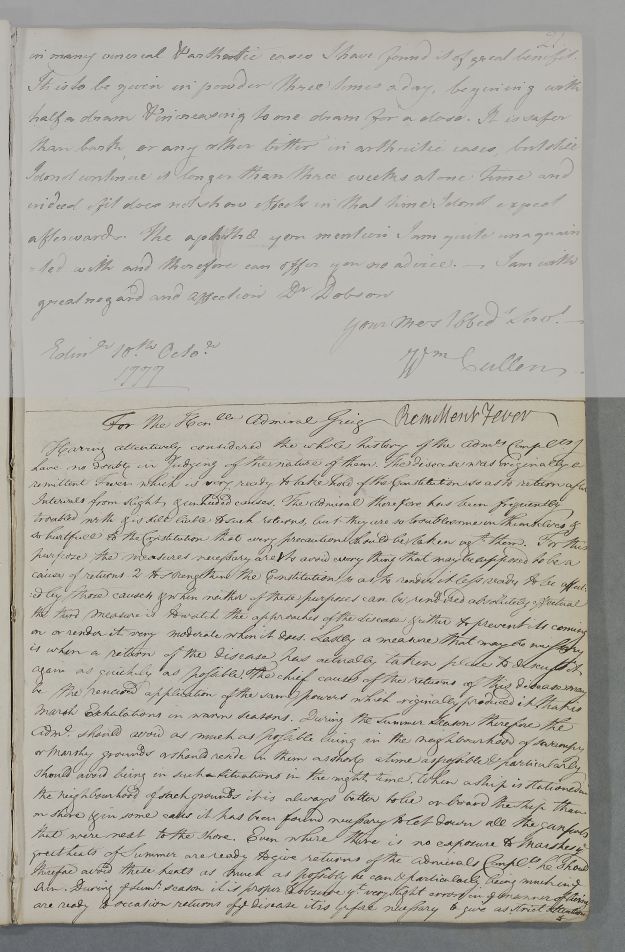 in many venereal & arthritic cases I have found it of great benefit.
It is to be given in powder three times a day, begining with
half a dram & increasing to one dram for a dose. It is safer
than bark, or any other bitter in arthritic cases, but still
I dont continue it longer than three weeks at one time and
indeed if it does not show effects in that time I dont expect
afterwards. The you mention I am quite unaquain
-ted with and therefore can offer you no advice. — I am with
great regard and affection Dr Dobson
your most obedt Servt.
Wm Cullen
Edinr 10th Octor
1777
For the Honble Admiral Greig Remittent Fever
Having attentively considered the whole history of the Admls Complts I
have no doubt in Judging of the nature of them. The disease was originally a
remittent Fever which is very ready to take hold of the Constitution so as to return after
Intervals from slight & causes. The Admiral therefore has been frequently
troubled with & is still liable to such returns, but they are so troublesome in themselves &
so hurtfull to the Constitution that every precaution should be taken agt them. For this
purpose the measures necessary are 1 to avoid every thing that may be supposed to be a
cause of returns 2 to strengthen the Constitution so as to render it less ready to be affect-
ed by those causes & when neither of these purposes can be rendered absolutely effectual
the third measure is to watch the approaches of the disease & either to prevent its coming
on or render it very moderate when it does. Lastly a measure that may be necessary
is when a return of the disease has actually taken place to dismiss it
again as quickly as possible. The chief causes of the returns of this disease may
be the renewed application of the same powers which originally produced it that is
marsh Exhalations in warm seasons. During the Summer Season therefore the
Adml. should avoid as much as possible living in the neighbourhood of swampy
or Marshy grounds & should reside in them as short a time as possible & particularly
should avoid being in such situations in the night time. When a ship is stationed in
the neighbourhood of such grounds it is always better to lie on board the ship than
on shore & in some cases it has been found necessary to let down all the
that were next to the shore. Even where there is no exposure to Marshes ye
great heats of Summer are ready to give returns of the admirals Complts he should
therefore avoid these heats as much as possibly he can & particularly being much in ye
Sun. During ye Sumr season it is proper to observe yt very slight errors in ye manner of living
are ready to occasion returns of ye disease it is yrfore necessary to give as strict attention